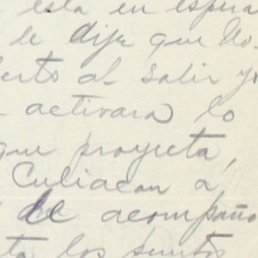 está en espera
le dije que No-
berto al salir yo
activara lo
que proyecta,
Culiacan a
de acompaño
ta los puntos